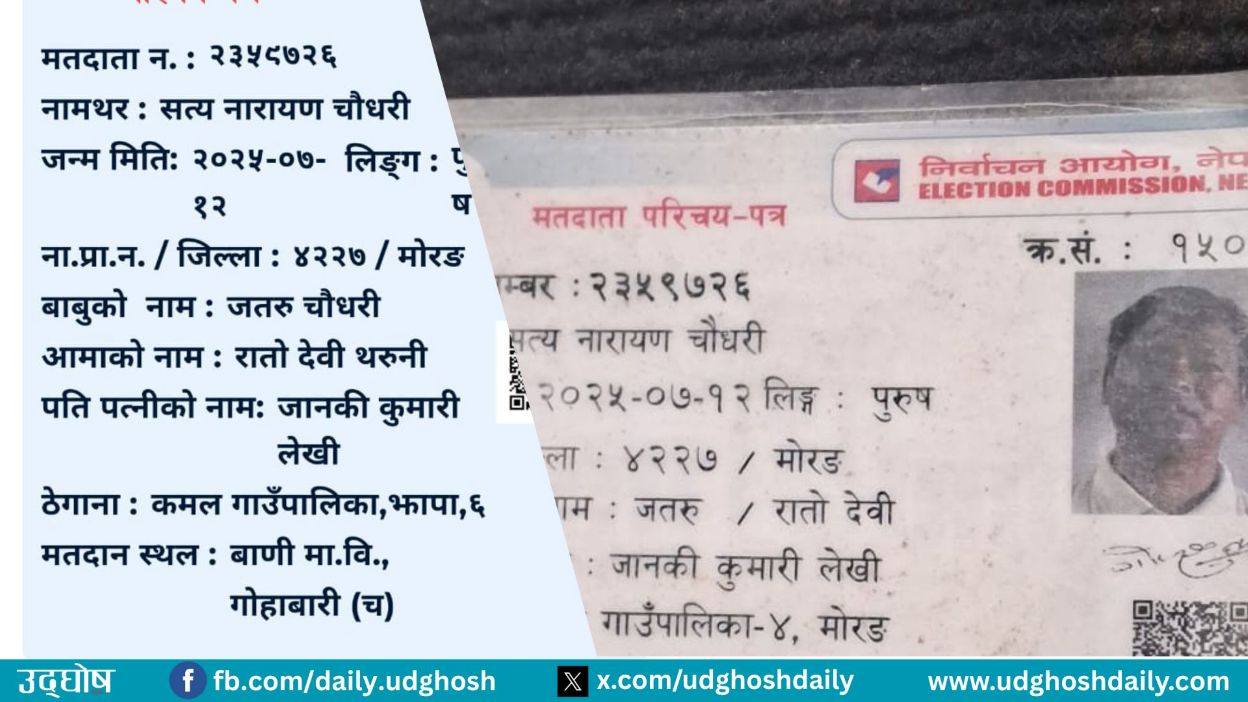 मतदाता न. : २३५९७२६
नामथर : सत्य नारायण चौधरी
जन्म मिति: २०२५-०७-१२ लिङ्ग : पुरुष
ना.प्रा.न. / जिल्ला : ४२२७ / मोरङ
बाबुको नाम : जतरु चौधरी
आमाको नाम : रातो देवी थरुनी
पति पत्नीको नाम: जानकी कुमारी
लेखी
ठेगाना : कमल गाउँपालिका,झापा,६
मतदान स्थल : बाणी मा.वि.,
गोहाबारी (च)
निर्वाचन आयोग, नेप
ELECTION COMMISSION, NE
मतदाता परिचय-पत्र
क्र.सं. : १५०
म्बर : २३५९७२६
सत्य नारायण चौधरी
२०२५-०७-१२ लिङ्ग : पुरुष
ला : ४२२७ / मोरङ
ाम : जतरु / रातो देवी
: जानकी कुमारी लेखी
गाउँपालिका-४, मोरङ
उद्घोष
fb.com/daily.udghosh
x.com/udghoshdaily
www.udghoshdaily.com